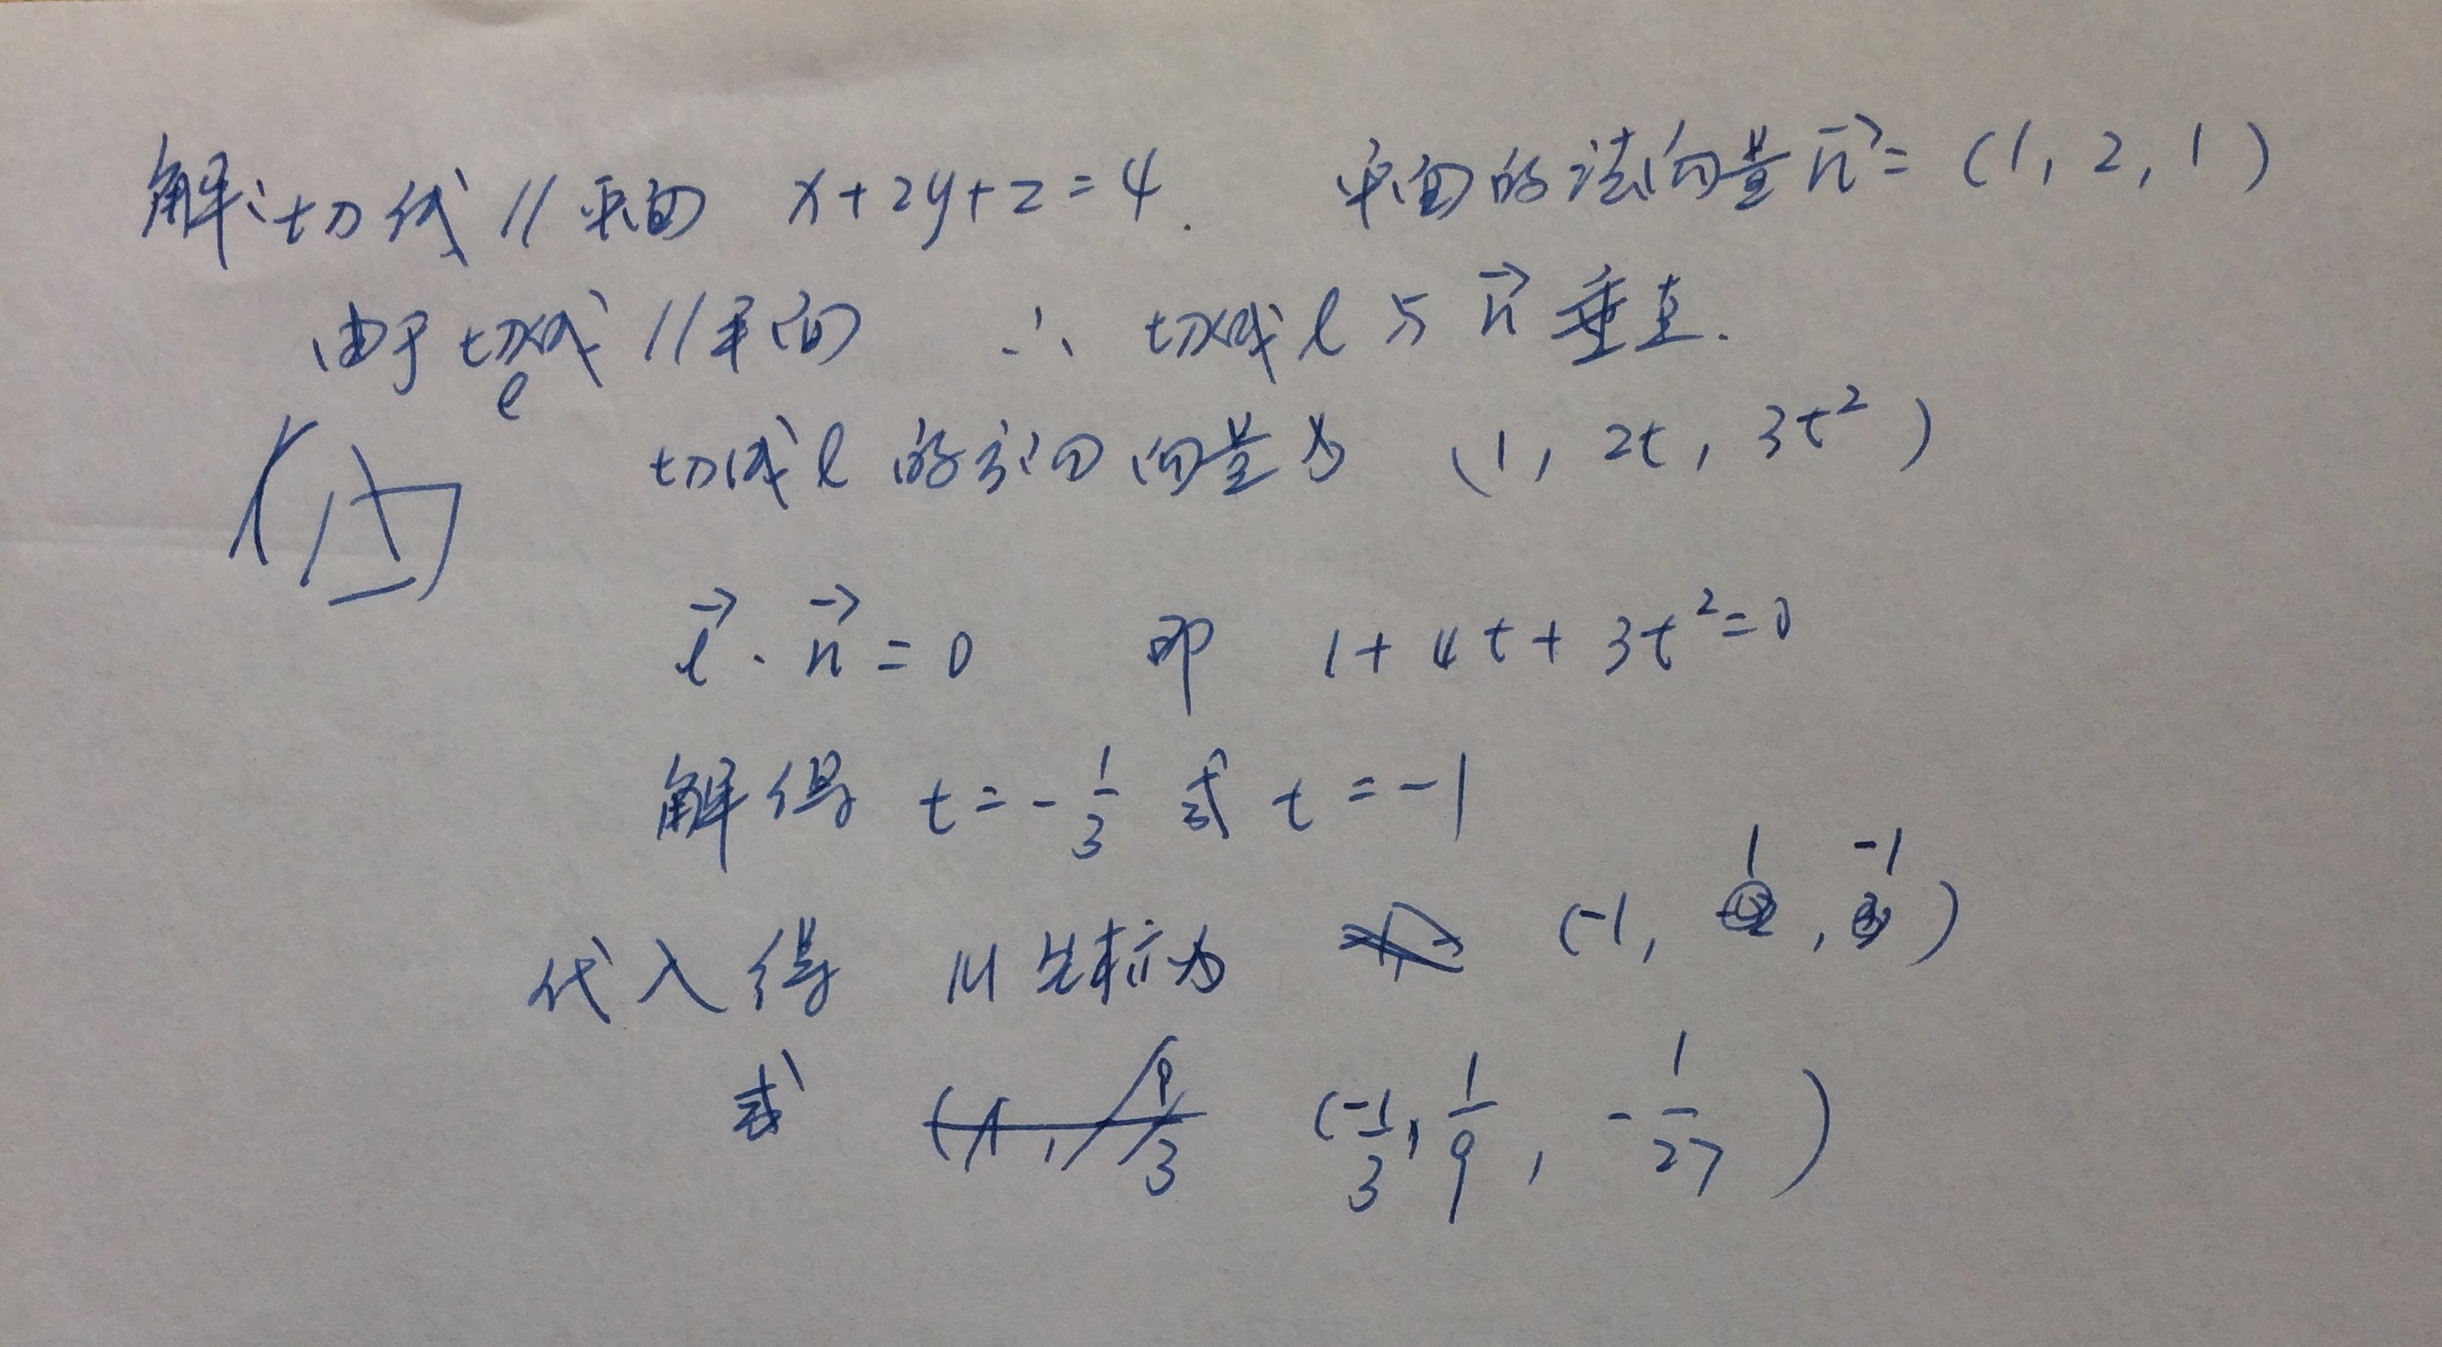 解:切线 // 平面 x+2y+z=4. 平面的法向量 n⃗=(1,2,1)
由于切线l // 平面 ∴ 切线 l 与 n⃗ 垂直.
切线 l 的方向向量为 (1, 2t, 3t²)
l⃗ · n⃗ = 0 即 1+4t+3t²=0
解得 t=-1/3 或 t=-1
代入得 M坐标为 (-1, 1, -1)
或 (-1/3, 1/9, -1/27)